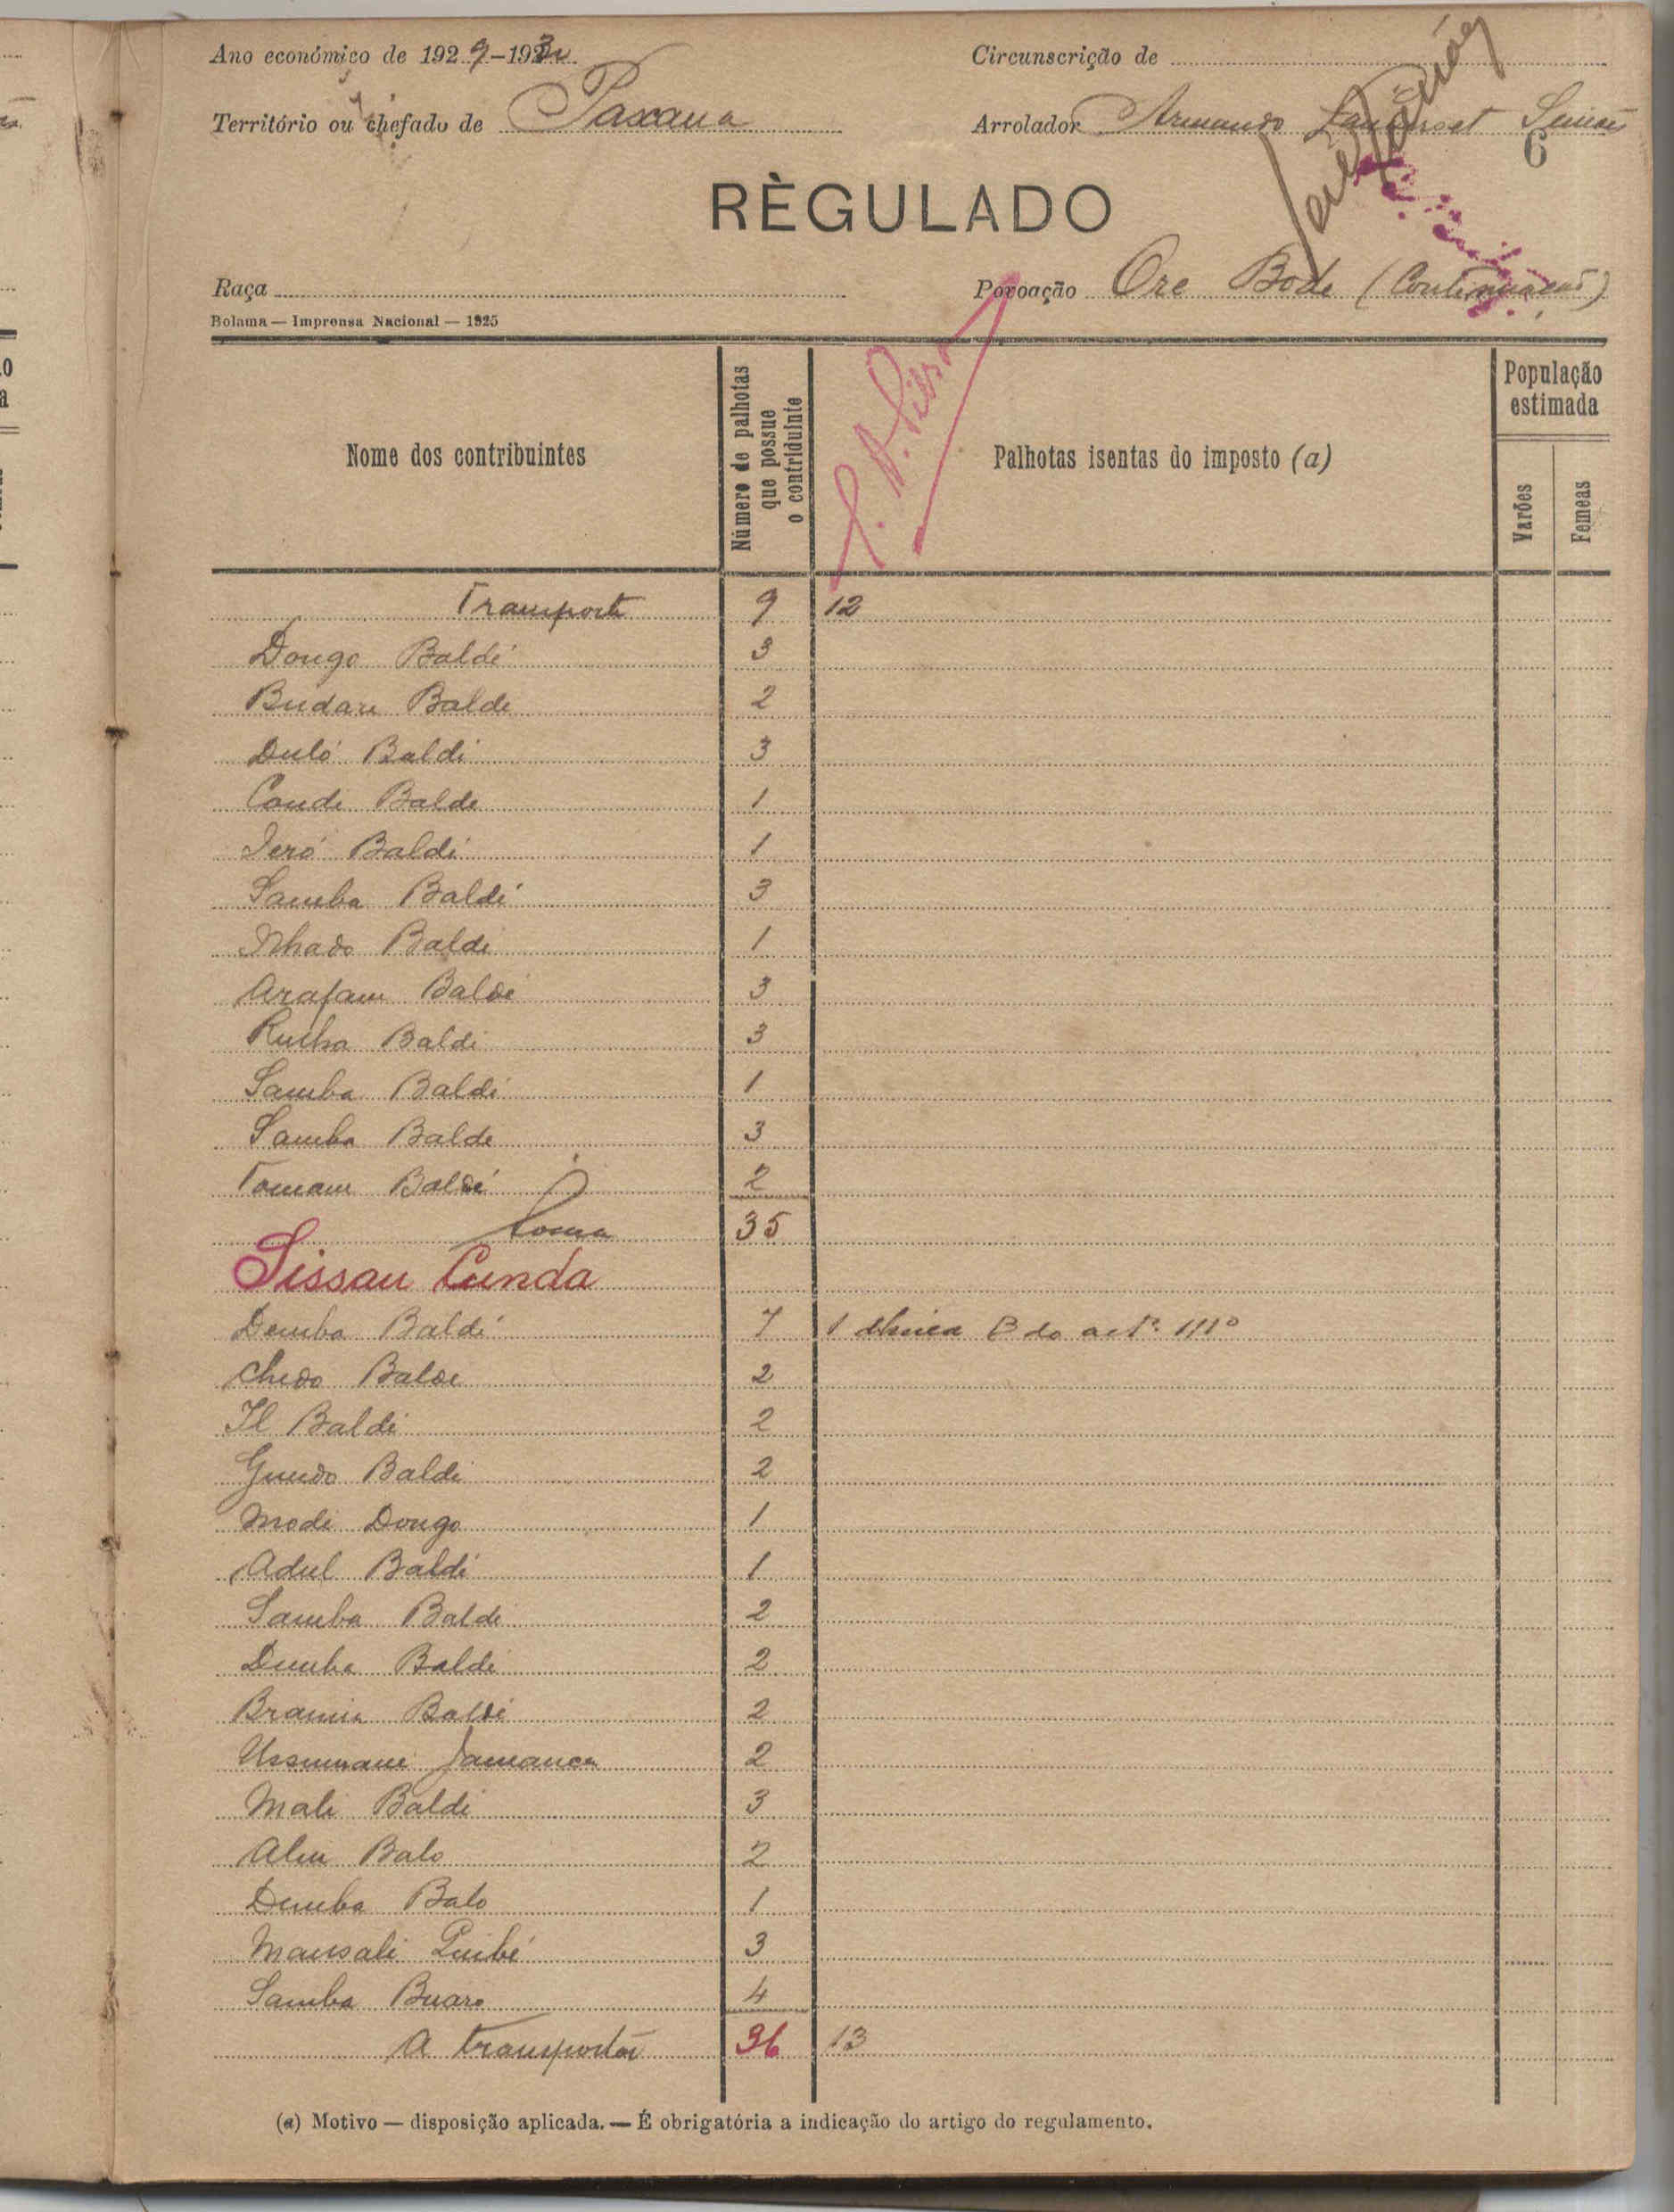 Ano económico de 1929-1930
Circunscrição de
Território ou chefado de Paxana
Arrolador Armando
6
RÈGULADO
Raça
Povoação Ore Bode (Continuação)
Bolama — Imprensa Nacional — 1925
Nome dos contribuintes
Número de palhotas
que possue
o contriduinte
Palhotas isentas do imposto (a)
População
estimada
Varões
Femeas
Transporte 9 12
Dougo Baldé 3
Budare Balde 2
Duló Baldi 3
Conde Balde 1
Jeró Baldi 1
Samba Baldé 3
Nhado Baldi 1
Arafam Baldé 3
Rucha Baldi 3
Samba Baldi 1
Samba Balde 3
Tomane Baldé 2
Soma 35
Sissau Cunda
Demba Baldé 7 1 alinea B do artº. 111º
Chedo Balde 2
Il Baldi 2
Guedo Baldi 2
Modi Dougo 1
Adul Baldi 1
Samba Baldi 2
Demba Baldi 2
Braima Baldé 2
Ussumane Jamanca 2
Mali Baldi 3
Aliu Balo 2
Demba Balo 1
Mansali Quibé 3
Samba Buaro 4
A transportar 36 13
(a) Motivo — disposição aplicada. — É obrigatória a indicação do artigo do regulamento.